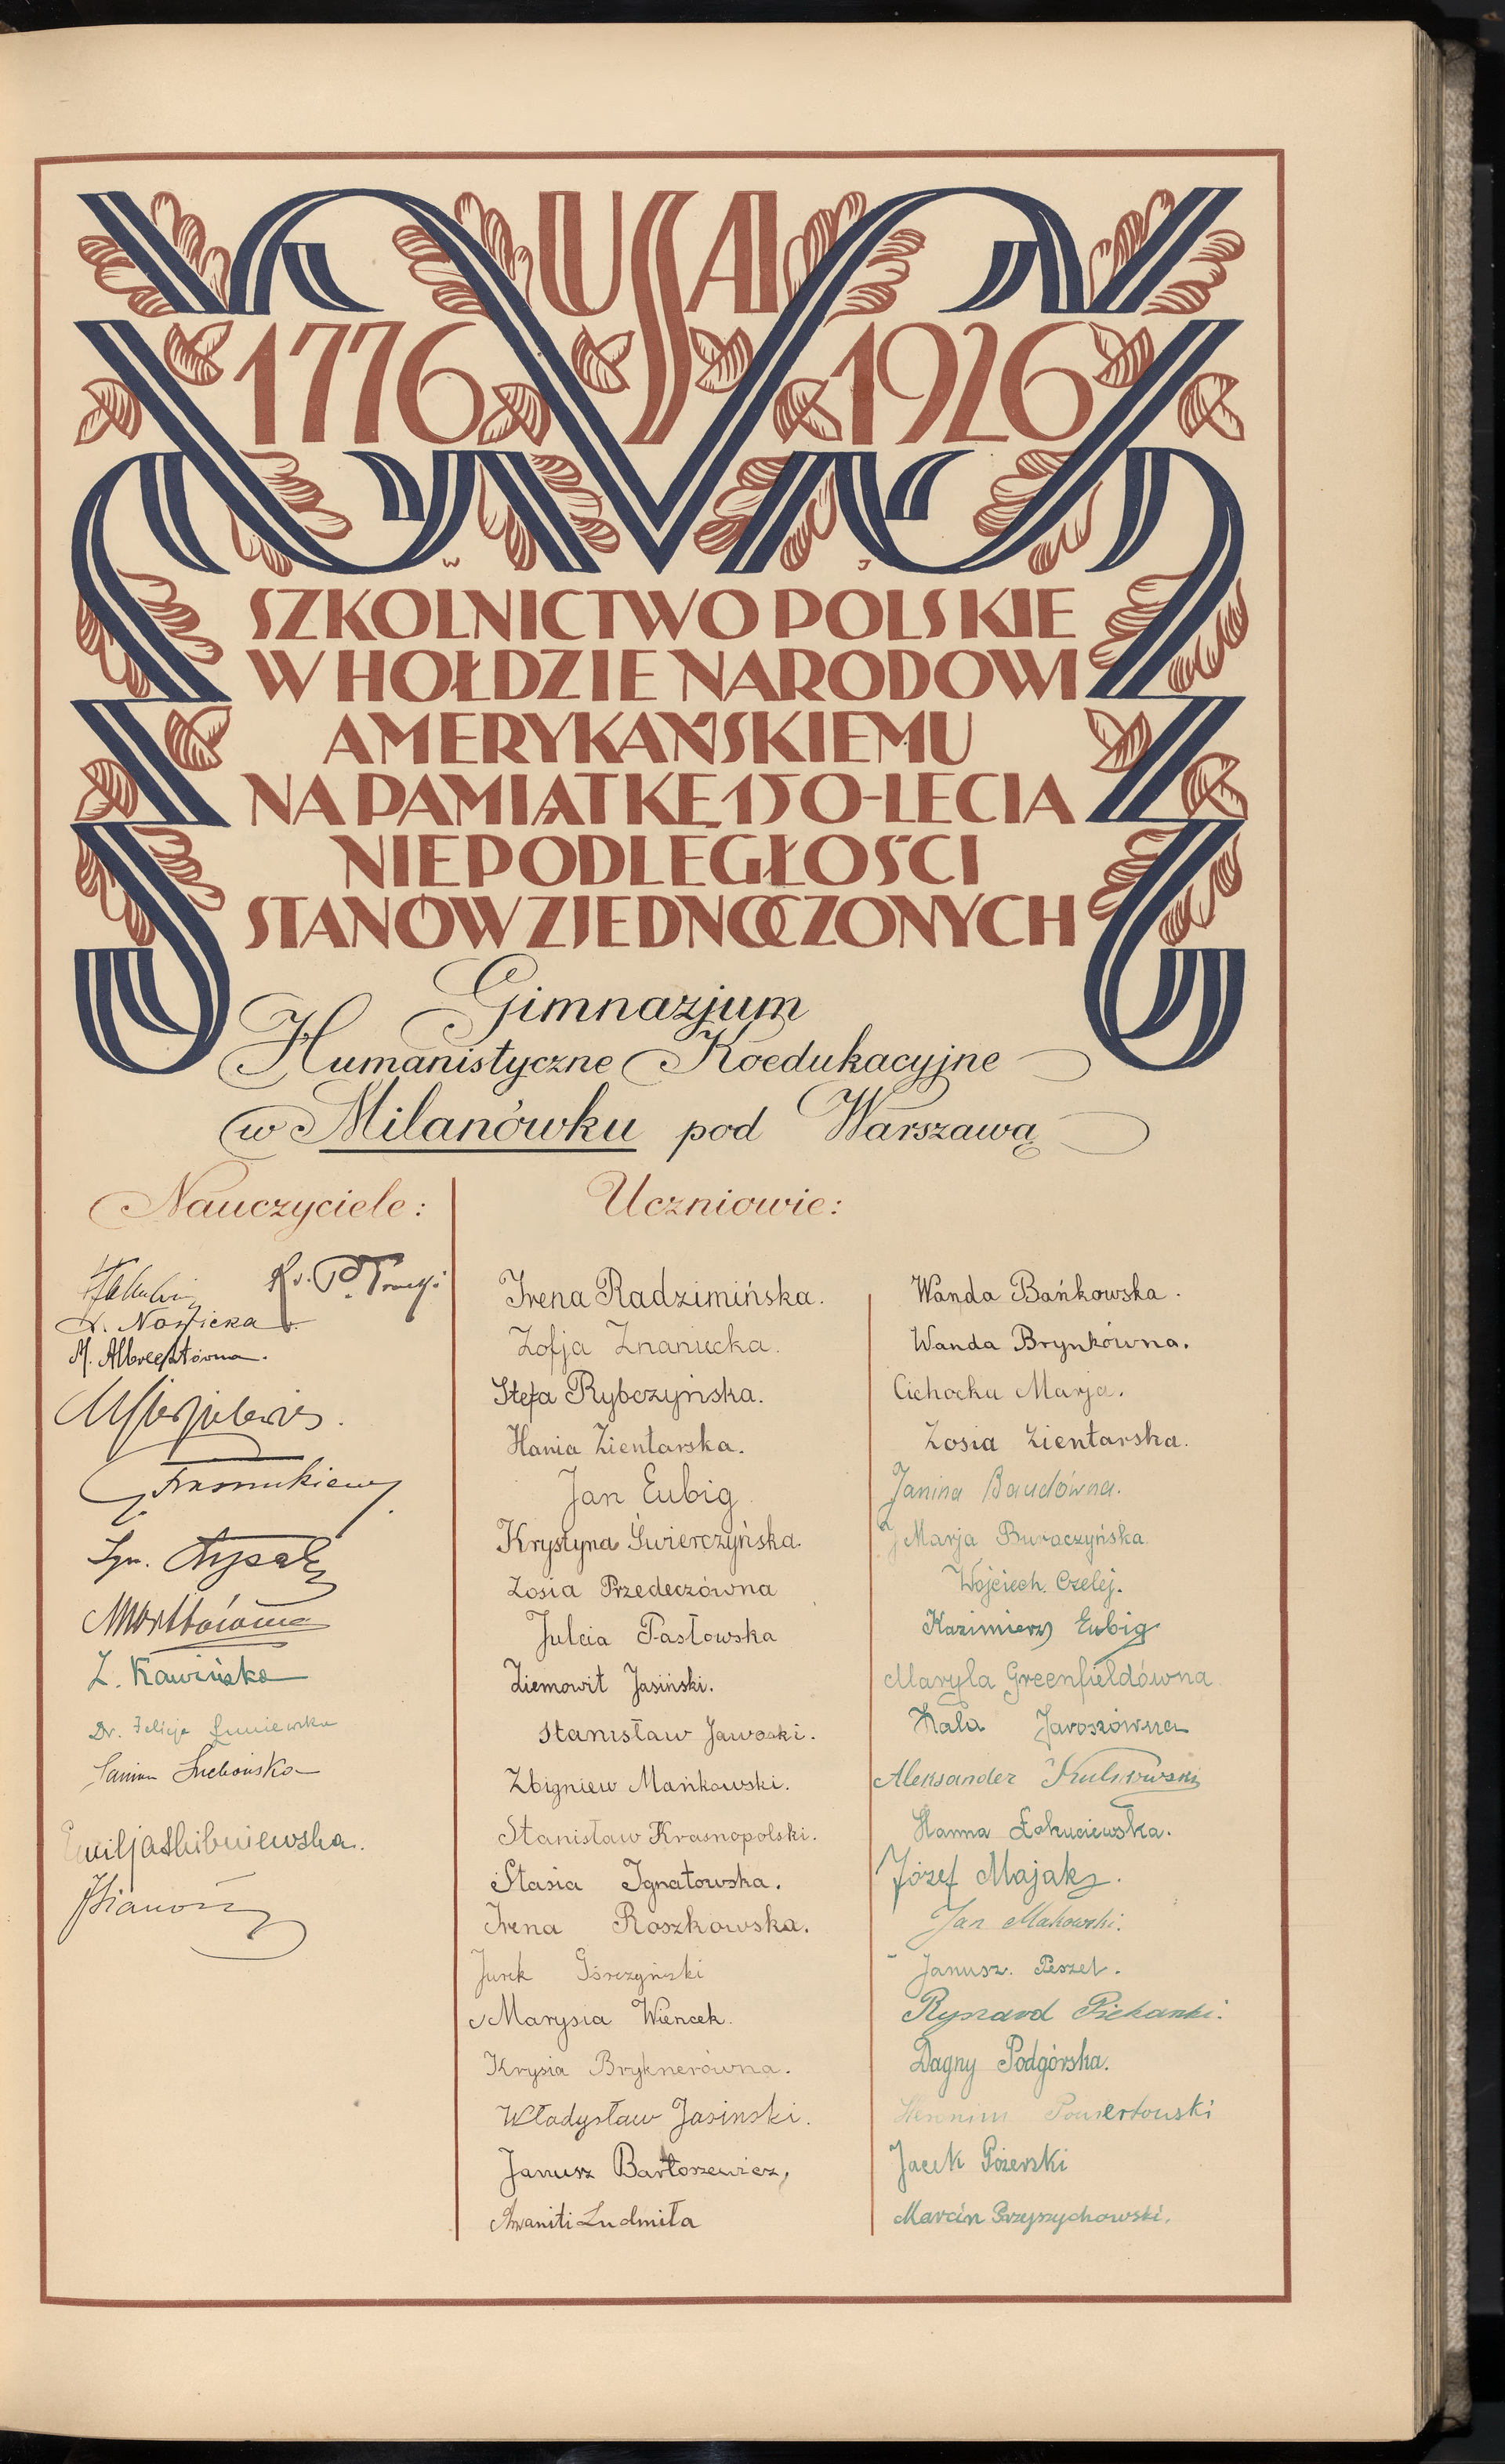 USA
1776 1926
W J
SZKOLNICTWO POLSKIE
W HOŁDZIE NARODOWI
AMERYKAŃSKIEMU
NA PAMIĄTKĘ 150-LECIA
NIEPODLEGŁOŚCI
STANÓW ZJEDNOCZONYCH
Gimnazjum
Humanistyczne Koedukacyjne
w Milanówku pod Warszawą
Nauczyciele:
M. Albrechtówna.
Z. Kawińska
Dr. Felicja
Janina Suchońska
Emilja Skibniewska.
Uczniowie:
Irena Radzimińska.
Zofja Znaniecka.
Stefa Rybczyńska.
Hania Zientarska.
Jan Eubig
Krystyna Świerczyńska.
Zosia Przedeczówna
Julcia Pasłowska
Ziemowit Jasiński.
Stanisław Jaworski.
Zbigniew Mańkowski.
Stanisław Krasnopolski.
Stasia Ignatowska.
Irena Roszkowska.
Jurek Górczyński
Marysia Wiencek.
Krysia Bryknerówna.
Władysław Jasinski.
Janusz Bartoszewicz,
Ludmiła
Wanda Bańkowska.
Wanda Brynkówna.
Cichocka Marja.
Zosia Zientarska.
Janina Baudówna.
Marja Buraczyńska.
Wojciech Czelej.
Kazimierz Eubig
Maryla Greenfieldówna
Hala Jaroszówna
Aleksander
Hanna Łokuciewska.
Józef Majak.
Jan Makowski.
Janusz. Peszel.
Ryszard Piekarski.
Dagny Podgórska.
Heronim
Jacek Pożerski
Marcin Przyszychowski.